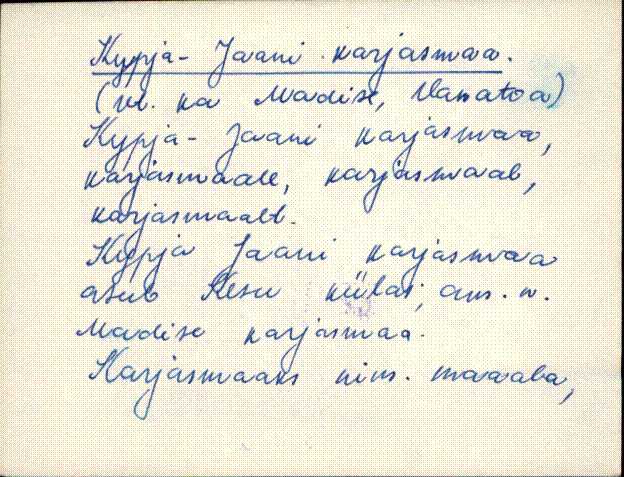 Kypja-Jaani karjasmaa.
(vt. ka Madise, Vanatoa)
Kypja-Jaani karjasmaa,
karjasmaale, karjasmaal,
karjasmaalt.
Kypja Jaani karjasmaa
asub Kesu külas, ams. n.
Madise karjasmaa.
Karjasmaaks nim. maaala,